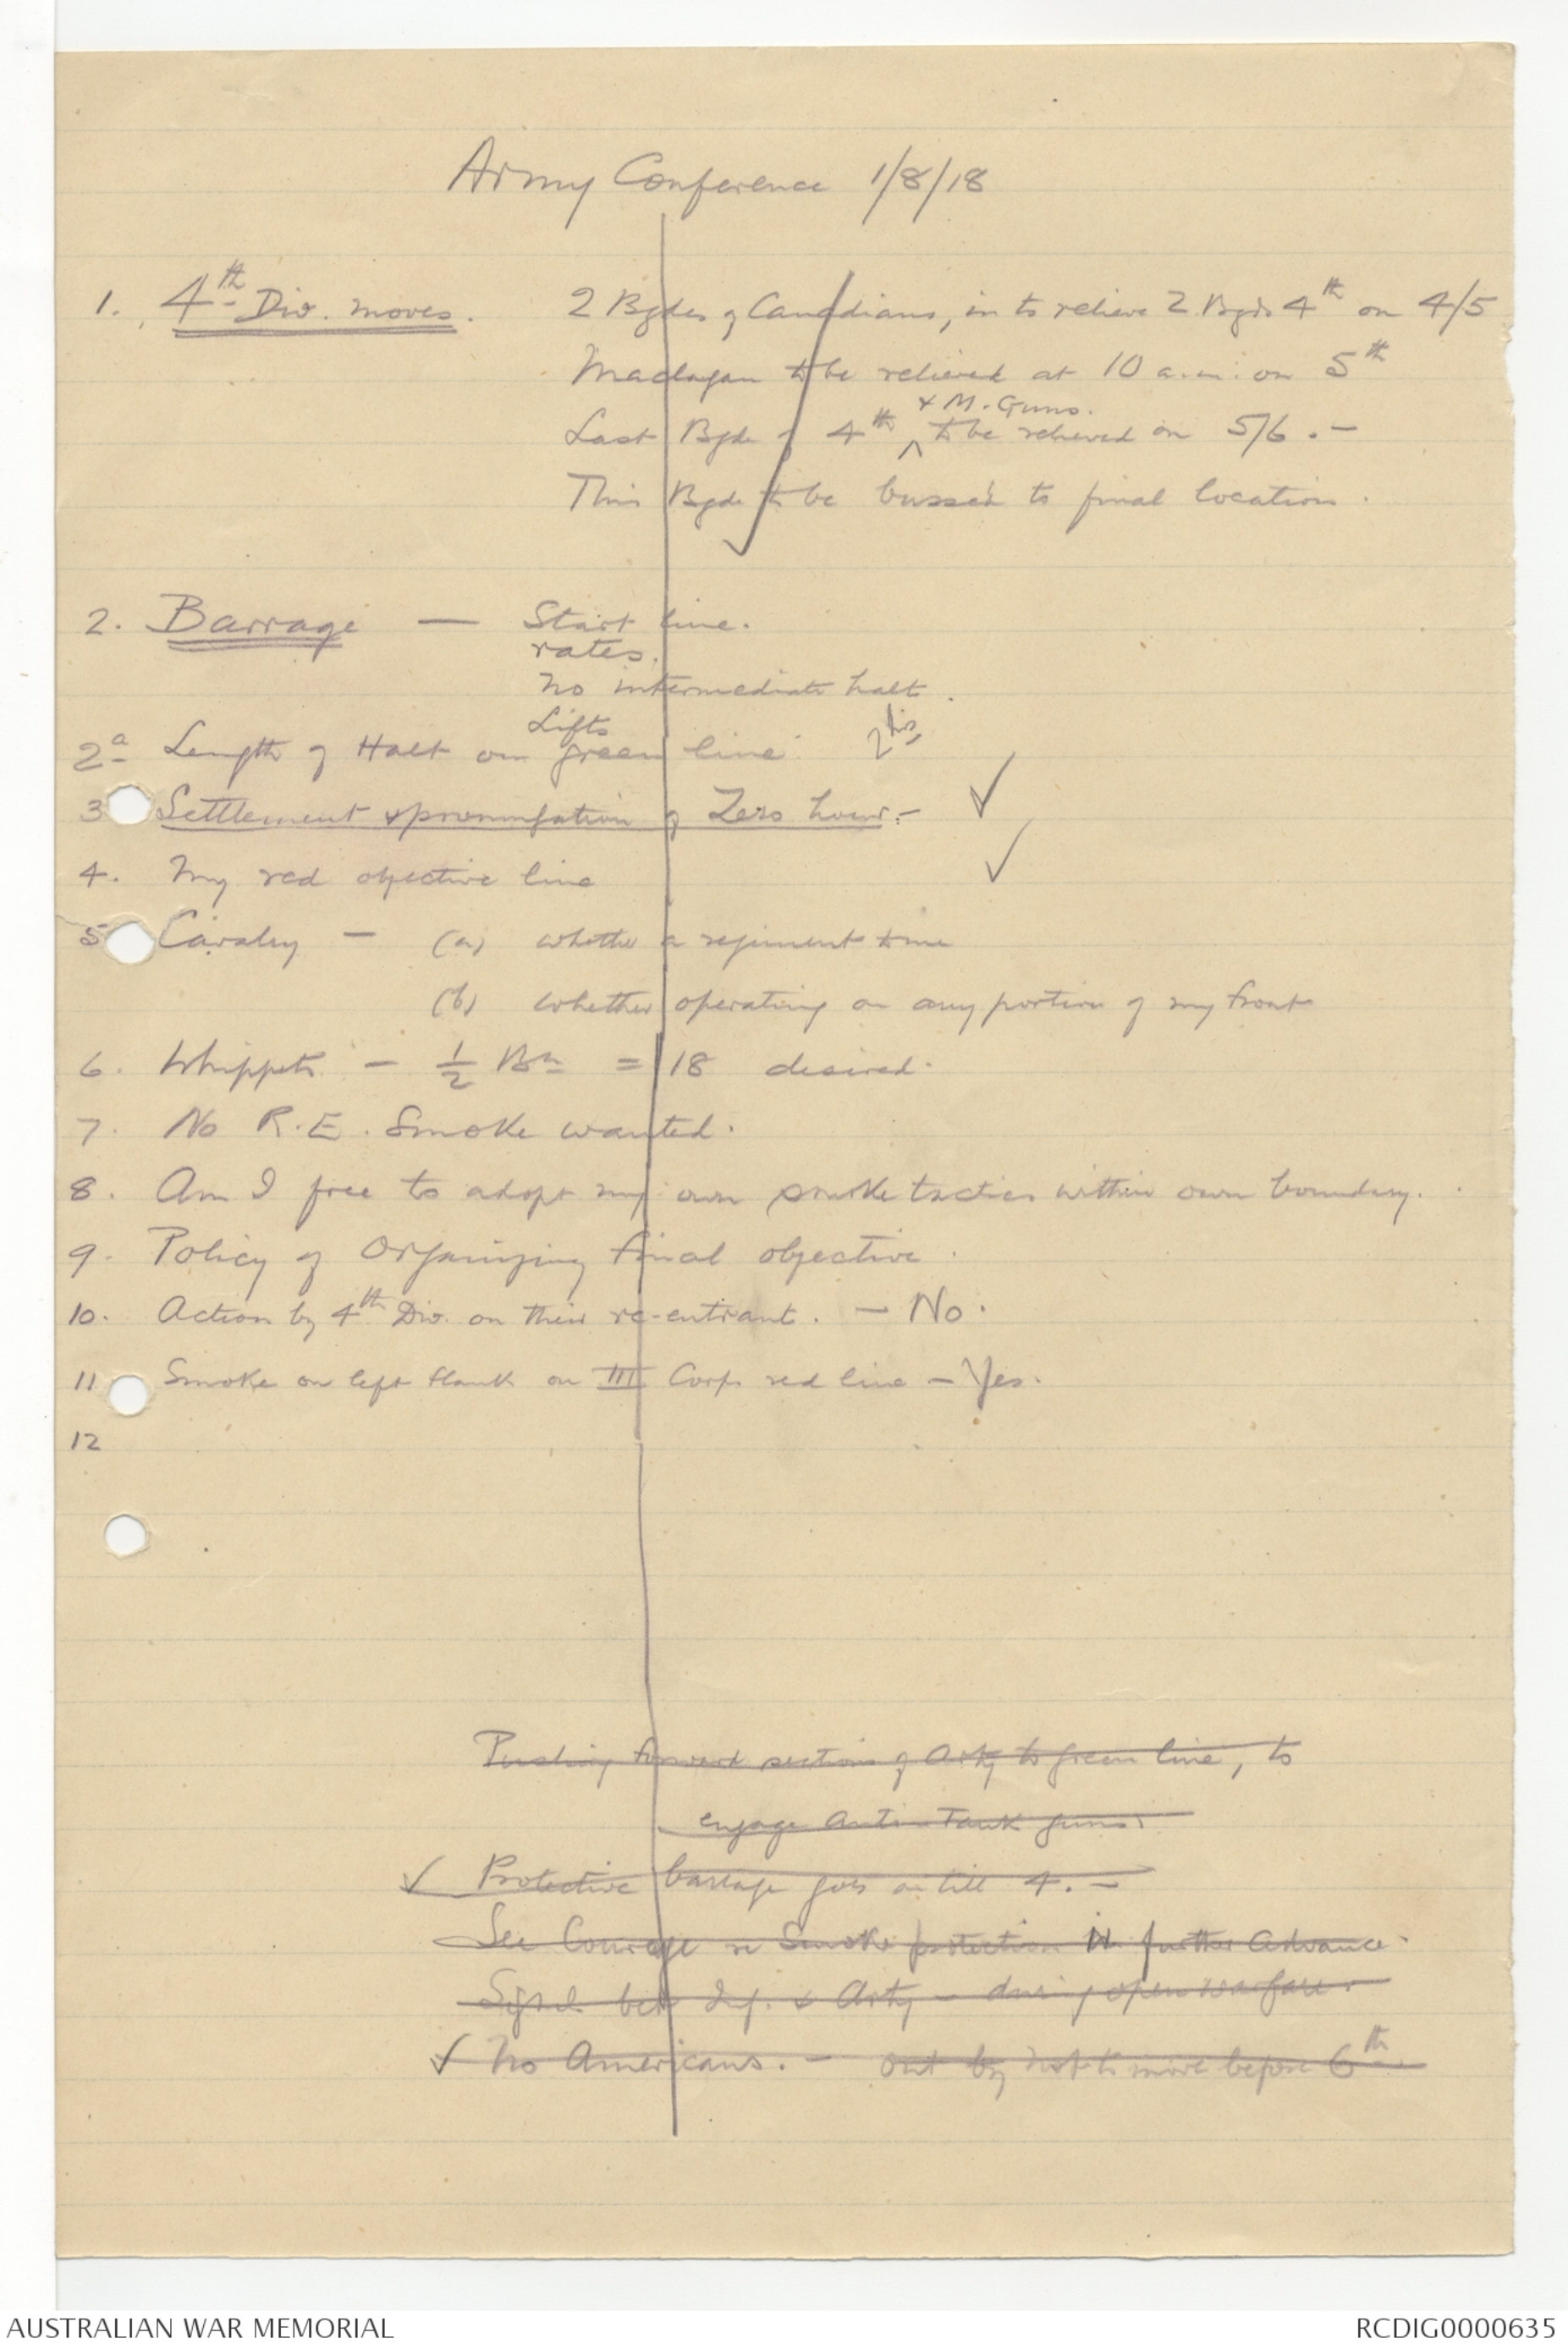 Army Conference 1/8/18
1. 4th Div. moves. 2 Bgdes of Canadians, in to relieve 2 Bgds 4th on 4/5
Maclagan to be relieved at 10 a.m. on 5th
& M. Guns.
Last Bgde of 4th ^ to be relieved on 5/6 . –
This Bgde to be bussed to final location.
2. Barrage — Start line.
rates.
No intermediate halt.
Lifts
2a Length of Halt on green line 2 hrs
3 Settlement & promulgation of Zero hour. – ✓
4. My red objective line ✓
5 Cavalry – (a) whether a regiment to me
(b) whether operating on any portion of my front
6. Whippets – 1/2 Bn = 18 desired.
7. No R.E. Smoke wanted.
8. Am I free to adopt my own smoke tactics within own boundary.
9. Policy of Organizing final objective.
10. Action by 4th Div. on their re-entrant. – No.
11 Smoke on left flank on III Corps red line – Yes.
12
Pushing forward sections of Arty to green line, to
engage Anti-Tank guns.
✓ Protective barrage goes on till 4. –
See Courage re Smoke protection in further Advance.
Signal bet Inf. & Arty – during open warfare.
✓ No Americans. – out by not to move before 6th.
AUSTRALIAN WAR MEMORIAL
RCDIG0000635